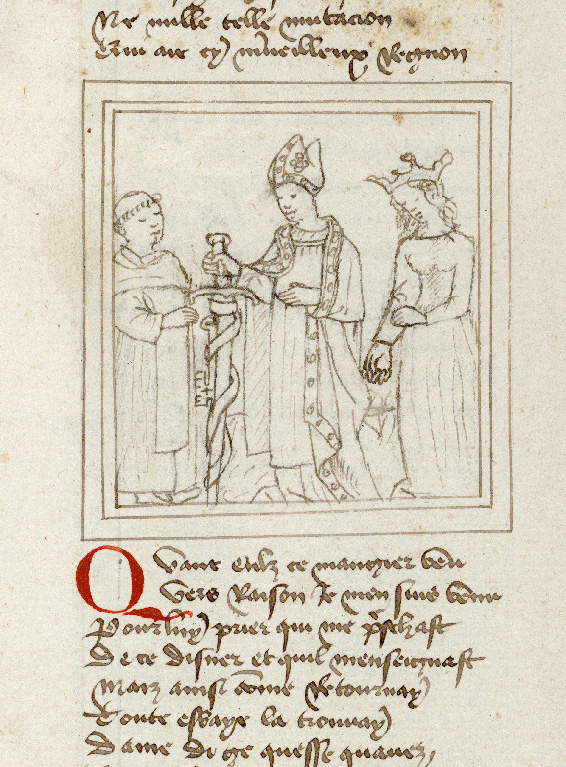 Ne nulle telle mutacion
Qui aie cy merveilleux Regnon
Quant eulz ce mangier veu
Vers Raison Je men suis venu
Pour luy prier qui me preschast
De ce disner et quil menseignast
Maiz ainsi come Retournay
Toute esbaye la trouvay
Dame di ge quesse quavez